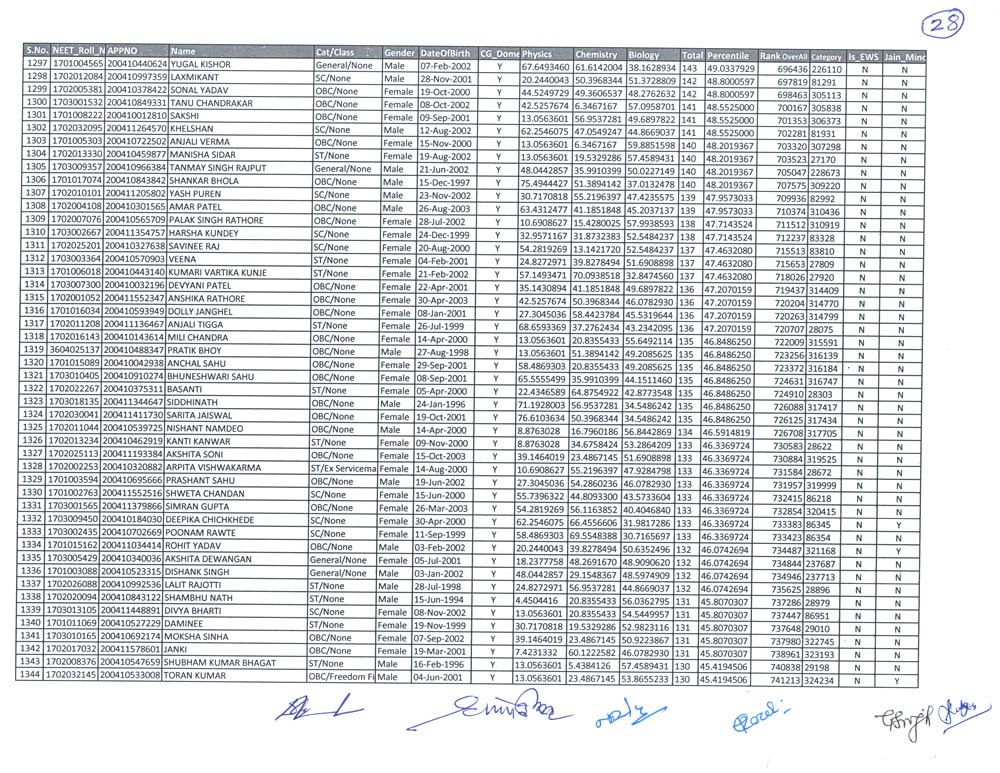 28
S.No. NEET_Roll_N APPNO Name Cat/Class Gender DateOfBirth CG_Dome Physics Chemistry Biology Total Percentile Rank OverAll Category Is_EWS Jain_Minc
1297 1701004565 200410440624 YUGAL KISHOR General/None Male 07-Feb-2002 Y 67.6493460 61.6142004 38.1628934 143 49.0337929 696436 226110 N N
1298 1702012084 200410997359 LAXMIKANT SC/None Male 28-Nov-2001 Y 20.2440043 50.3968344 51.3728809 142 48.8000597 697819 81291 N N
1299 1702005381 200410378422 SONAL YADAV OBC/None Female 19-Oct-2000 Y 44.5249729 49.3606537 48.2762632 142 48.8000597 698463 305113 N N
1300 1703001532 200410849331 TANU CHANDRAKAR OBC/None Female 08-Oct-2002 Y 42.5257674 6.3467167 57.0958701 141 48.5525000 700167 305838 N N
1301 1701008222 200410012810 SAKSHI OBC/None Female 09-Sep-2001 Y 13.0563601 56.9537281 49.6897822 141 48.5525000 701353 306373 N N
1302 1702032095 200411264570 KHELSHAN SC/None Male 12-Aug-2002 Y 62.2546075 47.0549247 44.8669037 141 48.5525000 702281 81931 N N
1303 1701005303 200410722502 ANJALI VERMA OBC/None Female 15-Nov-2000 Y 13.0563601 6.3467167 59.8851598 140 48.2019367 703320 307298 N N
1304 1702013330 200410459877 MANISHA SIDAR ST/None Female 19-Aug-2002 Y 13.0563601 19.5329286 57.4589431 140 48.2019367 703523 27170 N N
1305 1703009357 200410966384 TANMAY SINGH RAJPUT General/None Male 21-Jun-2002 Y 48.0442857 35.9910399 50.0227149 140 48.2019367 705047 228673 N N
1306 1701017074 200410843842 SHANKAR BHOLA OBC/None Male 15-Dec-1997 Y 75.4944427 51.3894142 37.0132478 140 48.2019367 707575 309220 N N
1307 1702010101 200411205802 YASH PUREN SC/None Male 23-Nov-2002 Y 30.7170818 55.2196397 47.4235575 139 47.9573033 709936 82992 N N
1308 1702004108 200410301565 AMAR PATEL OBC/None Male 26-Aug-2003 Y 63.4312477 41.1851848 45.2037137 139 47.9573033 710374 310436 N N
1309 1702007076 200410565709 PALAK SINGH RATHORE OBC/None Female 28-Jul-2002 Y 10.6908627 15.4280025 57.9938593 138 47.7143524 711512 310919 N N
1310 1703002667 200411354757 HARSHA KUNDEY SC/None Female 24-Dec-1999 Y 32.9571167 31.8732383 52.5484237 138 47.7143524 712237 83328 N N
1311 1702025201 200410327638 SAVINEE RAJ SC/None Female 20-Aug-2000 Y 54.2819269 13.1421720 52.5484237 137 47.4632080 715513 83810 N N
1312 1703003364 200410570903 VEENA ST/None Female 04-Feb-2001 Y 24.8272971 39.8278494 51.6908898 137 47.4632080 715653 27809 N N
1313 1701006018 200410443140 KUMARI VARTIKA KUNJE ST/None Female 21-Feb-2002 Y 57.1493471 70.0938518 32.8474560 137 47.4632080 718026 27920 N N
1314 1703007300 200410032196 DEVYANI PATEL OBC/None Female 22-Apr-2001 Y 35.1430894 41.1851848 49.6897822 136 47.2070159 719437 314409 N N
1315 1702001052 200411552347 ANSHIKA RATHORE OBC/None Female 30-Apr-2003 Y 42.5257674 50.3968344 46.0782930 136 47.2070159 720204 314770 N N
1316 1701016034 200410593949 DOLLY JANGHEL OBC/None Female 08-Jan-2001 Y 27.3045036 58.4423784 45.5319644 136 47.2070159 720263 314799 N N
1317 1702011208 200411136467 ANJALI TIGGA ST/None Female 26-Jul-1999 Y 68.6593369 37.2762434 43.2342095 136 47.2070159 720707 28075 N N
1318 1702016143 200410143614 MILI CHANDRA OBC/None Female 14-Apr-2000 Y 13.0563601 20.8355433 55.6492114 135 46.8486250 722009 315591 N N
1319 3604025137 200410488347 PRATIK BHOY OBC/None Male 27-Aug-1998 Y 13.0563601 51.3894142 49.2085625 135 46.8486250 723256 316139 N N
1320 1701015089 200410042938 ANCHAL SAHU OBC/None Female 29-Sep-2001 Y 58.4869303 20.8355433 49.2085625 135 46.8486250 723372 316184 N N
1321 1703010405 200410910274 BHUNESHWARI SAHU OBC/None Female 08-Sep-2001 Y 65.5555499 35.9910399 44.1511460 135 46.8486250 724631 316747 N N
1322 1702022267 200410375311 BASANTI ST/None Female 05-Apr-2000 Y 22.4346589 64.8754922 42.8773548 135 46.8486250 724910 28303 N N
1323 1703018135 200411344647 SIDDHINATH OBC/None Male 24-Jan-1996 Y 71.1928003 56.9537281 34.5486242 135 46.8486250 726088 317417 N N
1324 1702030041 200411411730 SARITA JAISWAL OBC/None Female 19-Oct-2001 Y 76.6103634 50.3968344 34.5486242 135 46.8486250 726125 317434 N N
1325 1702011044 200410539725 NISHANT NAMDEO OBC/None Male 14-Apr-2000 Y 8.8763028 16.7960186 56.8442869 134 46.5914819 726708 317705 N N
1326 1702013234 200410462919 KANTI KANWAR ST/None Female 09-Nov-2000 Y 8.8763028 34.6758424 53.2864209 133 46.3369724 730583 28622 N N
1327 1702025113 200411193384 AKSHITA SONI OBC/None Female 15-Oct-2003 Y 39.1464019 23.4867145 51.6908898 133 46.3369724 730884 319525 N N
1328 1702002253 200410320882 ARPITA VISHWAKARMA ST/Ex Servicema Female 14-Aug-2000 Y 10.6908627 55.2196397 47.9284798 133 46.3369724 731584 28672 N N
1329 1701003594 200410695666 PRASHANT SAHU OBC/None Male 19-Jun-2002 Y 27.3045036 54.2860236 46.0782930 133 46.3369724 731957 319999 N N
1330 1701002763 200411552516 SHWETA CHANDAN SC/None Female 15-Jun-2000 Y 55.7396322 44.8093300 43.5733604 133 46.3369724 732415 86218 N N
1331 1703001565 200411379866 SIMRAN GUPTA OBC/None Female 26-Mar-2003 Y 54.2819269 56.1163852 40.4046840 133 46.3369724 732854 320415 N N
1332 1703009450 200410184030 DEEPIKA CHICHKHEDE SC/None Female 30-Apr-2000 Y 62.2546075 66.4556606 31.9817286 133 46.3369724 733383 86345 N Y
1333 1703002435 200410702669 POONAM RAWTE SC/None Female 11-Sep-1999 Y 58.4869303 69.5548388 30.7165697 133 46.3369724 733423 86354 N N
1334 1701015162 200411034414 ROHIT YADAV OBC/None Male 03-Feb-2002 Y 20.2440043 39.8278494 50.6352496 132 46.0742694 734487 321168 N Y
1335 1703005429 200410340036 AKSHITA DEWANGAN General/None Female 05-Jul-2001 Y 18.2377758 48.2691670 48.9090620 132 46.0742694 734844 237687 N N
1336 1701003088 200410523315 DISHANK SINGH General/None Male 03-Jan-2002 Y 48.0442857 29.1548367 48.5974909 132 46.0742694 734946 237713 N N
1337 1702026088 200410992536 LALIT RAJOTTI ST/None Male 28-Jul-1998 Y 24.8272971 56.9537281 44.8669037 132 46.0742694 735625 28896 N N
1338 1702020094 200410843122 SHAMBHU NATH ST/None Male 15-Jun-1994 Y 4.4504416 20.8355433 56.0362795 131 45.8070307 737286 28979 N N
1339 1703013105 200411448891 DIVYA BHARTI SC/None Female 08-Nov-2002 Y 13.0563601 20.8355433 54.5449957 131 45.8070307 737447 86951 N N
1340 1701011069 200410527229 DAMINEE ST/None Female 19-Nov-1999 Y 30.7170818 19.5329286 52.9823116 131 45.8070307 737648 29010 N N
1341 1703010165 200410692174 MOKSHA SINHA OBC/None Female 07-Sep-2002 Y 39.1464019 23.4867145 50.9223867 131 45.8070307 737980 322745 N N
1342 1702017032 200411578601 JANKI OBC/None Female 19-Mar-2001 Y 7.4231332 60.1222582 46.0782930 131 45.8070307 738961 323193 N N
1343 1702008376 200410547659 SHUBHAM KUMAR BHAGAT ST/None Male 16-Feb-1996 Y 13.0563601 5.4384126 57.4589431 130 45.4194506 740838 29198 N N
1344 1702032145 200410533008 TORAN KUMAR OBC/Freedom Fi Male 04-Jun-2001 Y 13.0563601 23.4867145 53.8655233 130 45.4194506 741213 324234 N Y